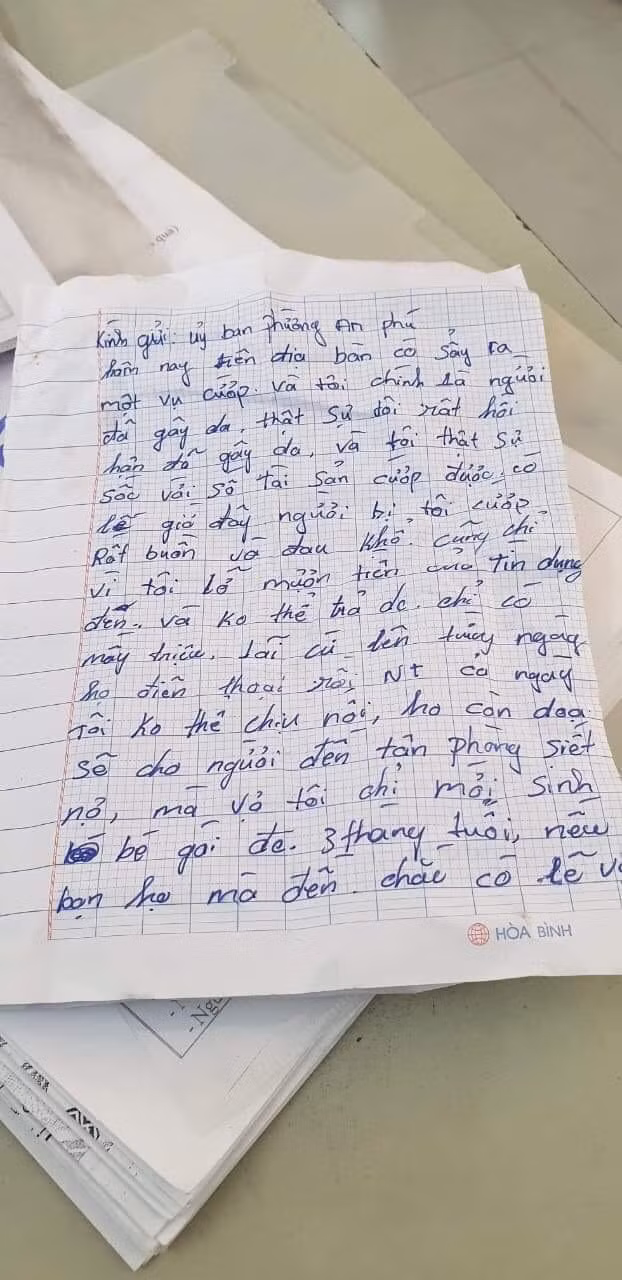 qua)
Kính gửi: ủy ban phường An phú
hôm nay trên địa bàn có sảy ra
một vụ cướp. và tôi chính là người
đã gây da, thật sự tôi rất hối
hận đã gây da, và tôi thật sự
sốc với số tài sản cướp được, có
lẽ giờ đây người bị tôi cướp
Rất buồn và đau khổ. cũng chỉ
vì tôi lỡ mượn tiền của tín dụng
đen. và ko thể trả dc. chỉ có
mấy triệu. lãi cứ lên từng ngày
họ điện thoại rồi Nt cả ngày
Tôi ko thể chịu nổi, họ còn dọa
sẽ cho người đến tận phòng siết
nợ, mà vợ tôi chỉ mới sinh
bé gái dc. 3 thang tuổi, nếu
bọn họ mà đến. chắc có lẽ
HÒA BÌNH